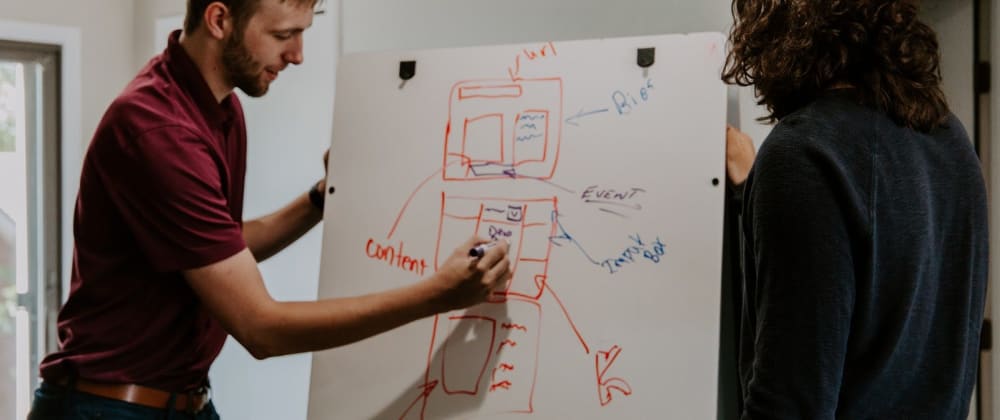 url
EVENT
content
INPUT
BOX